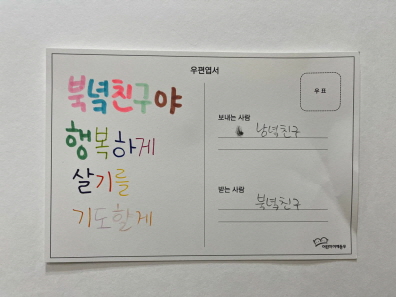 우편엽서
북녘친구야
행복하게
살기를
기도할게
우표
보내는 사람
남녘친구
받는 사람
북녘친구
어린이어깨동무